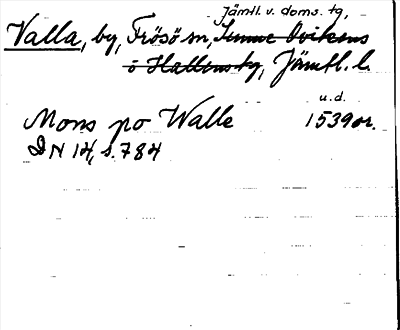 Jämtl. v. doms. tg,
Valla, by, Frösö sn, Sunne Ovikens
o Hallens tg, Jämtl. l.
u. d.
Mons po Walle 1539 or.
DN 14, s. 784